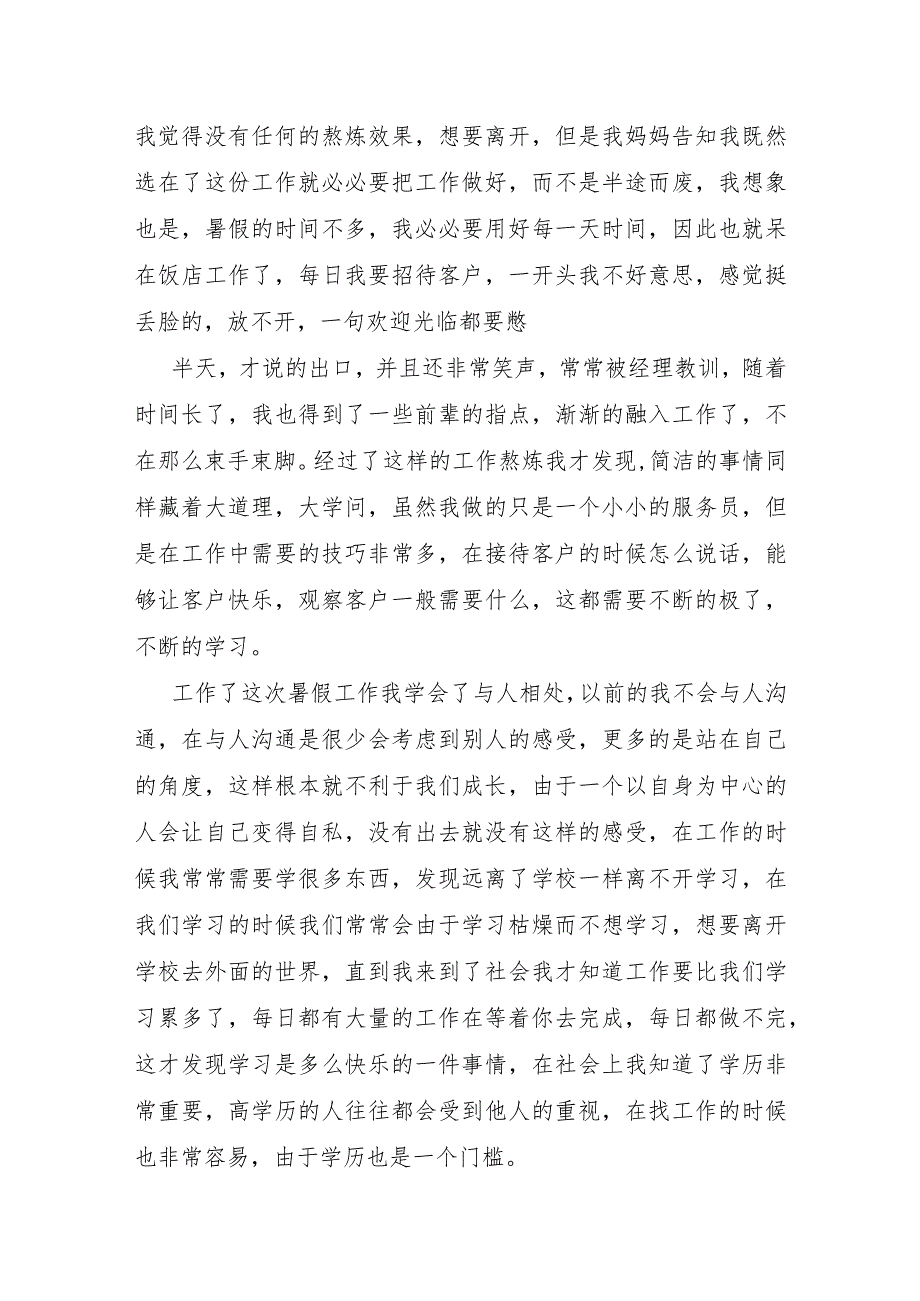 我觉得没有任何的熬炼效果，想要离开，但是我妈妈告知我既然
选在了这份工作就必必要把工作做好，而不是半途而废，我想象
也是，暑假的时间不多，我必必要用好每一天时间，因此也就呆
在饭店工作了，每日我要招待客户，一开头我不好意思，感觉挺
丢脸的，放不开，一句欢迎光临都要憋
半天，才说的出口，并且还非常笑声，常常被经理教训，随着
时间长了，我也得到了一些前辈的指点，渐渐的融入工作了，不
在那么束手束脚。经过了这样的工作熬炼我才发现,简洁的事情同
样藏着大道理，大学问，虽然我做的只是一个小小的服务员，但
是在工作中需要的技巧非常多，在接待客户的时候怎么说话，能
够让客户快乐，观察客户一般需要什么，这都需要不断的极了，
不断的学习。
工作了这次暑假工作我学会了与人相处,以前的我不会与人沟
通，在与人沟通是很少会考虑到别人的感受，更多的是站在自己
的角度，这样根本就不利于我们成长，由于一个以自身为中心的
人会让自己变得自私，没有出去就没有这样的感受，在工作的时
候我常常需要学很多东西，发现远离了学校一样离不开学习，在
我们学习的时候我们常常会由于学习枯燥而不想学习，想要离开
学校去外面的世界，直到我来到了社会我才知道工作要比我们学
习累多了，每日都有大量的工作在等着你去完成，每日都做不完，
这才发现学习是多么快乐的一件事情，在社会上我知道了学历非
常重要，高学历的人往往都会受到他人的重视，在找工作的时候
也非常容易，由于学历也是一个门槛。